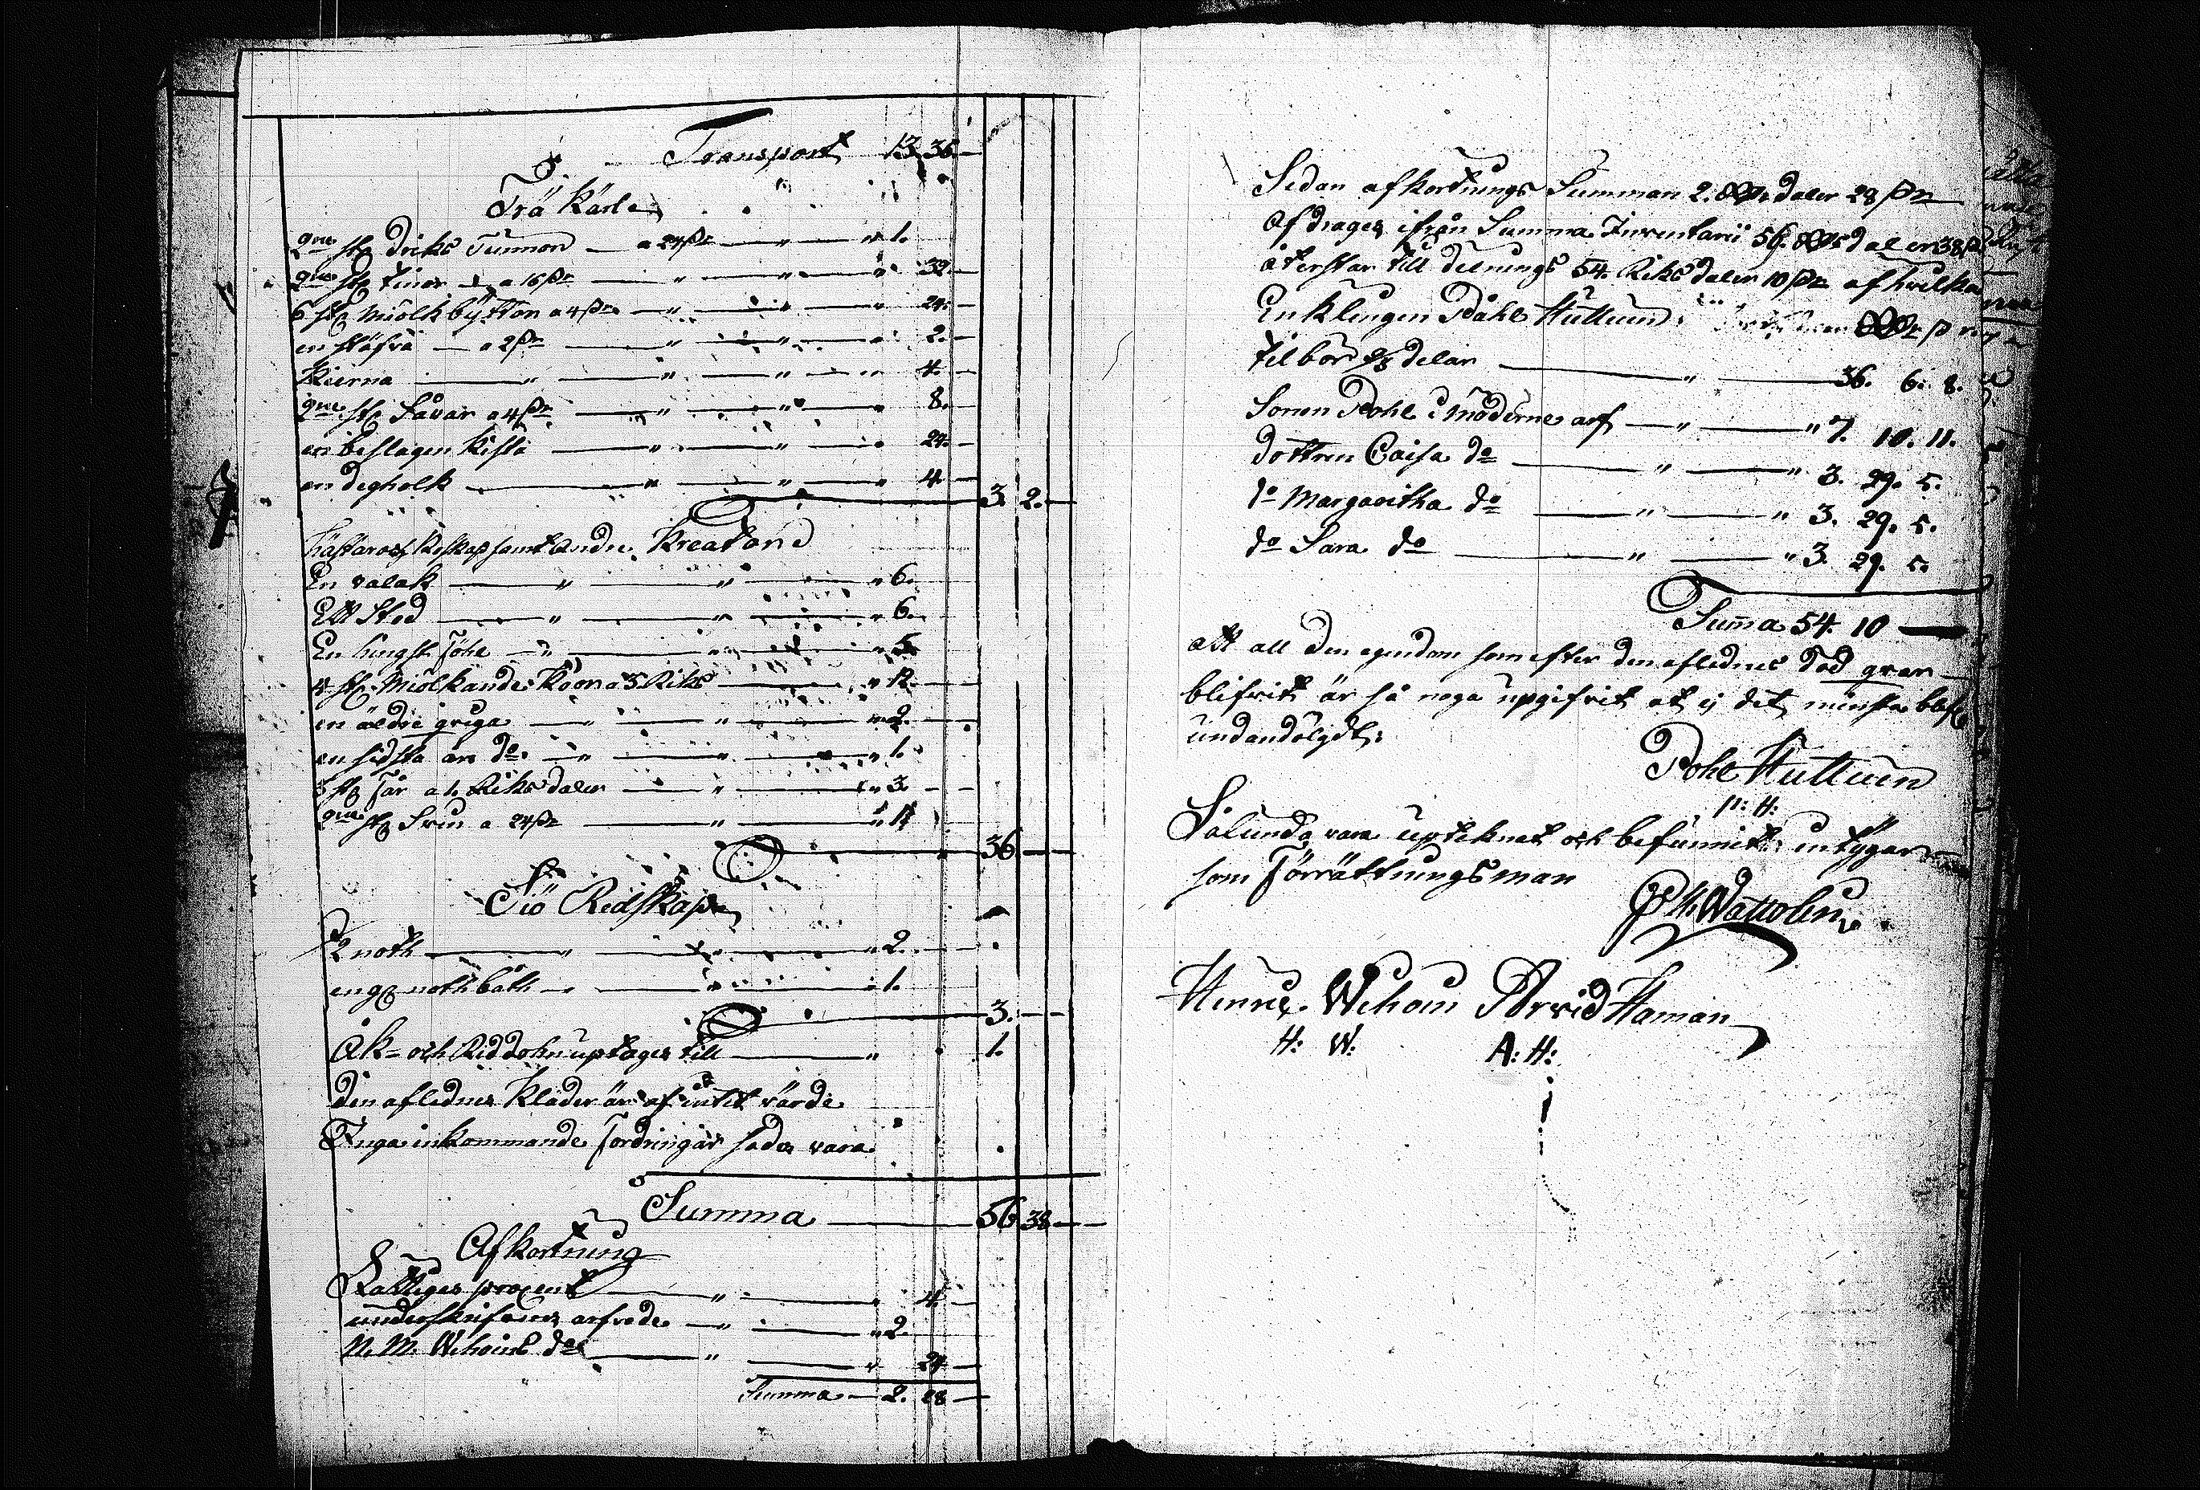 Transport 13 36 —
Trä Kärle
2ne st. dricks Tunnor — a 24 sk — " — " 1.
2ne st. tinor — a 16 sk — " — " 32 —
6 st. miölk byttor a 4 sk — " — " 24. —
en stäfva — a 2 sk — " — " 2. —
Kierna — " — " 4. —
2ne st. Såar a 4 sk — " — " 8. —
en beslagen Kista — " — " 24. —
en degholk — " — " 4 —
3. 2. —
Hästar och samt andre Kreatur
En valak — " — " 6.
Ett Stod — " — " 6.
En hingst föhl — " — " 5
4 st. Miölkande Koor a 3 Riks — " 12. —
en äldre qviga — " — " 2. —
en sidsta års do — " — " 1.
3 st. Får a 1. Riksdaler — " — " 3. —
2ne st. Svin a 24 sk — " — " 1
36 — —
Siö Redskap
1/2 noth — " — " 2. —
en noth båth — " — " 1.
3. — —
Åk= och Riddohn uptages till — " 1.
den aflednes Kläder är af intet värde
Inga inkommande fordringar sades vara
Summa — 56 38 —
Afkortning
Fattiges procent — " — " 4 —
underskrifvares arfvode — " — " 2.
N. M. Wehoins do — " — " 24 —
Summa — 2. 28 —
Sedan afkortnings Summan 2. Rdaler 28 sk
afdrages ifrån Summa Inventarii 56. Riksdaler 38 sk
återstår till delnings 54. Riksdaler 10 sk af hvilka
Enklingen Påhl Huttuin
tilbör 2/3 delar — " — 36. 6. 8.
Sonen Pohl i möderne arf — " — " 7. 10. 11.
dottren Caisa do — " — " 3. 29. 5.
do Margaritha do — " — " 3. 29. 5.
do Sara do — " — " 3. 29. 5.
Summa 54. 10 —
att all den egendom som efter den aflednes död qvar
blifvit är så noga upgifvit at ej det minsta blef
undandölgdt:
Pohl Huttuin
P: H:
Sålunda vara upteknat och befunnit, intygar
som Förrättningsman
Wattolin
Henric Wehoin Arvid Haman
H: W: A: H: